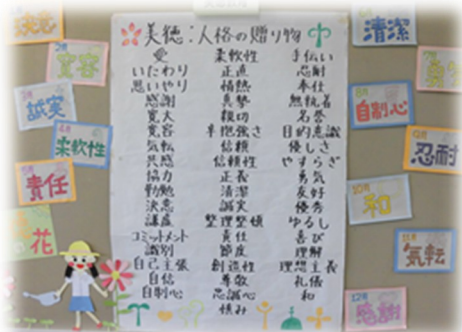 美徳:人格の贈り物
愛
いたわり
思いやり
感謝
寛大
寛容
気転
共感
協力
勤勉
決意
謙虚
コミットメント
識別
自己主張
自信
自制心
柔軟性
正直
情熱
真摯
親切
辛抱強さ
信頼
信頼性
正義
清潔
誠実
整理整頓
責任
節度
創造性
尊敬
忠誠心
慎み
手伝い
忍耐
奉仕
無執着
名誉
目的意識
優しさ
やすらぎ
勇気
友好
優秀
ゆるし
喜び
理解
理想主義
礼儀
和
決意
寛容
誠実
柔軟性
責任
の花
清潔
自制心
忍耐
10月
和
気転
12月
感謝